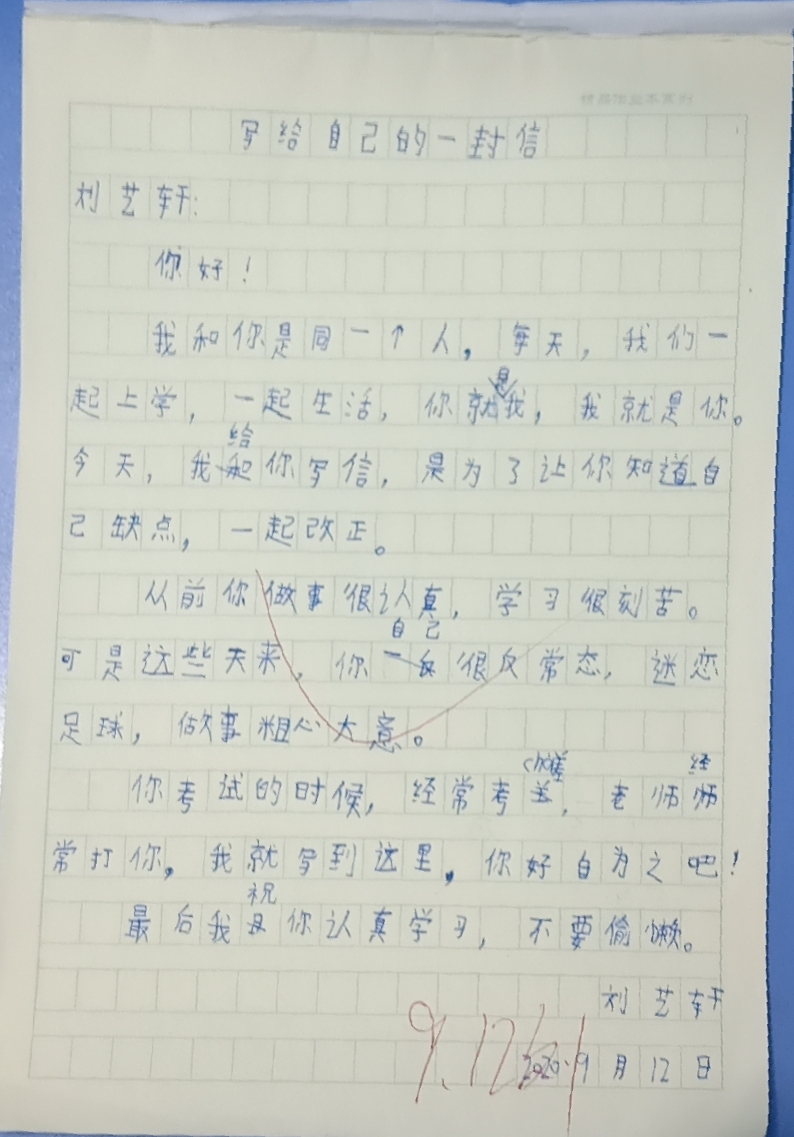 写给自己的一封信
刘艺轩:
你好!
我和你是同一个人，每天，我们一
起上学，一起生活，你就是我，我就是你。
今天，我给你写信，是为了让你知道自
己缺点，一起改正。
从前你做事很认真，学习很刻苦。
可是这些天来，你自己很反常态，迷恋
足球，做事粗心大意。
你考试的时候，经常考差，老师经
常打你。我就写到这里，你好自为之吧!
最后我祝你认真学习，不要偷懒。
刘艺轩
2020.9月12日
9.12